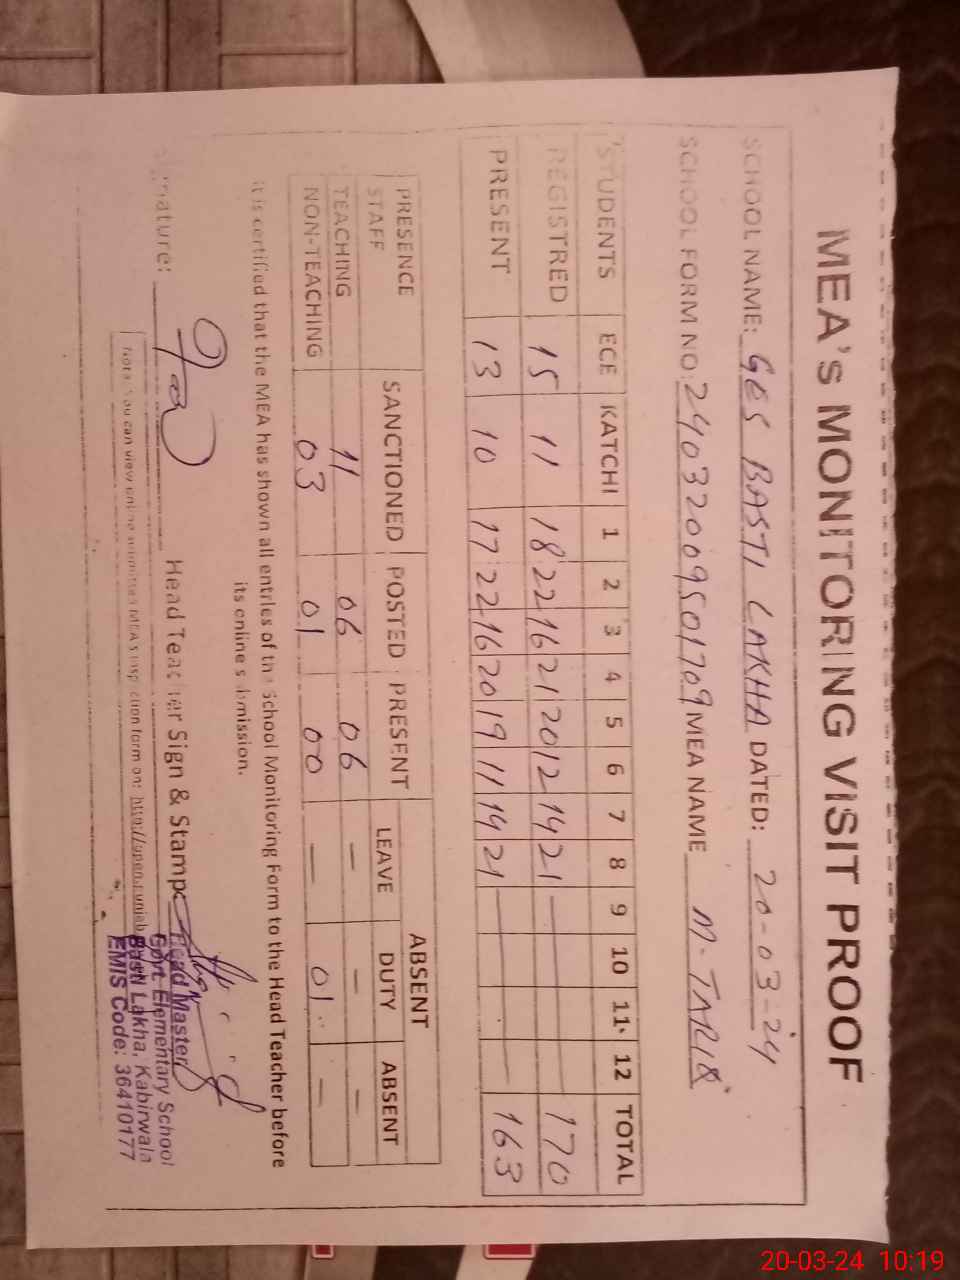 MEA's MONITORING VISIT PROOF
SCHOOL NAME: GES BASTI LAKHA DATED: 20-03-24
SCHOOL FORM NO: 24032009501709 MEA NAME M. TARIQ
STUDENTS ECE KATCHI 1 2 3 4 5 6 7 8 9 10 11 12 TOTAL
REGISTRED 15 11 18 22 16 21 20 12 14 21 170
PRESENT 13 10 17 22 16 20 19 11 14 21 163
PRESENCE STAFF SANCTIONED POSTED PRESENT ABSENT
LEAVE DUTY ABSENT
TEACHING 11 06 06 – – –
NON-TEACHING 03 01 00 – 01 –
It is certified that the MEA has shown all entries of the School Monitoring Form to the Head Teacher before
its online submission.
Signature: Head Teacher Sign & Stamp
Note: You can view online submitted MEA's inspection form on: http://open.punjab
Head Master
Govt. Elementary School
Basti Lakha, Kabirwala
EMIS Code: 36410177
20-03-24 10:19